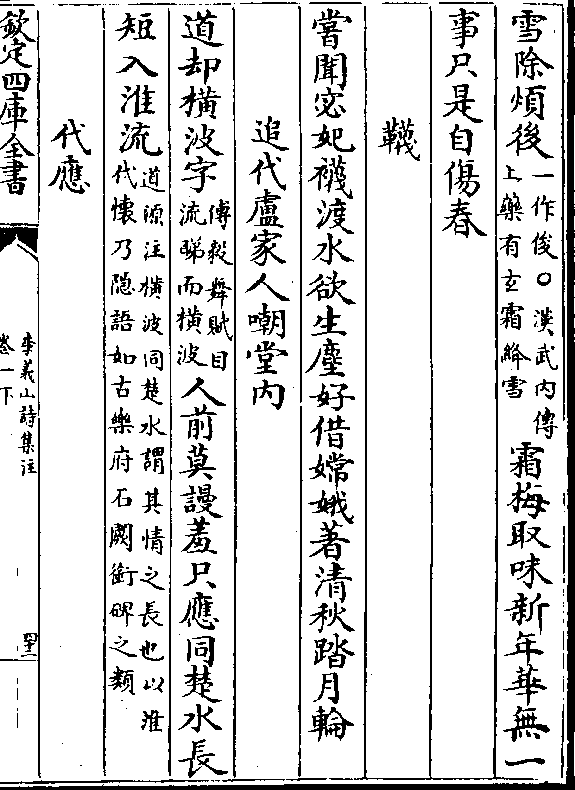 雪除煩後一作俊○漢武内傳上藥有玄霜絳雪霜梅取味新年華無一
事只是自傷春
韈
嘗聞宓妃襪渡水欲生塵好借嫦娥著清秋踏月輪
追代盧家人嘲堂内
道却横波字傅毅舞賦目流睇而横波人前莫謾羞只應同楚水長
短入淮流道源注横波同楚水謂其情之長也以淮代懷乃隠語如古樂府石闕銜碑之類
代應
欽定四庫全書
李義山詩集注
卷一下